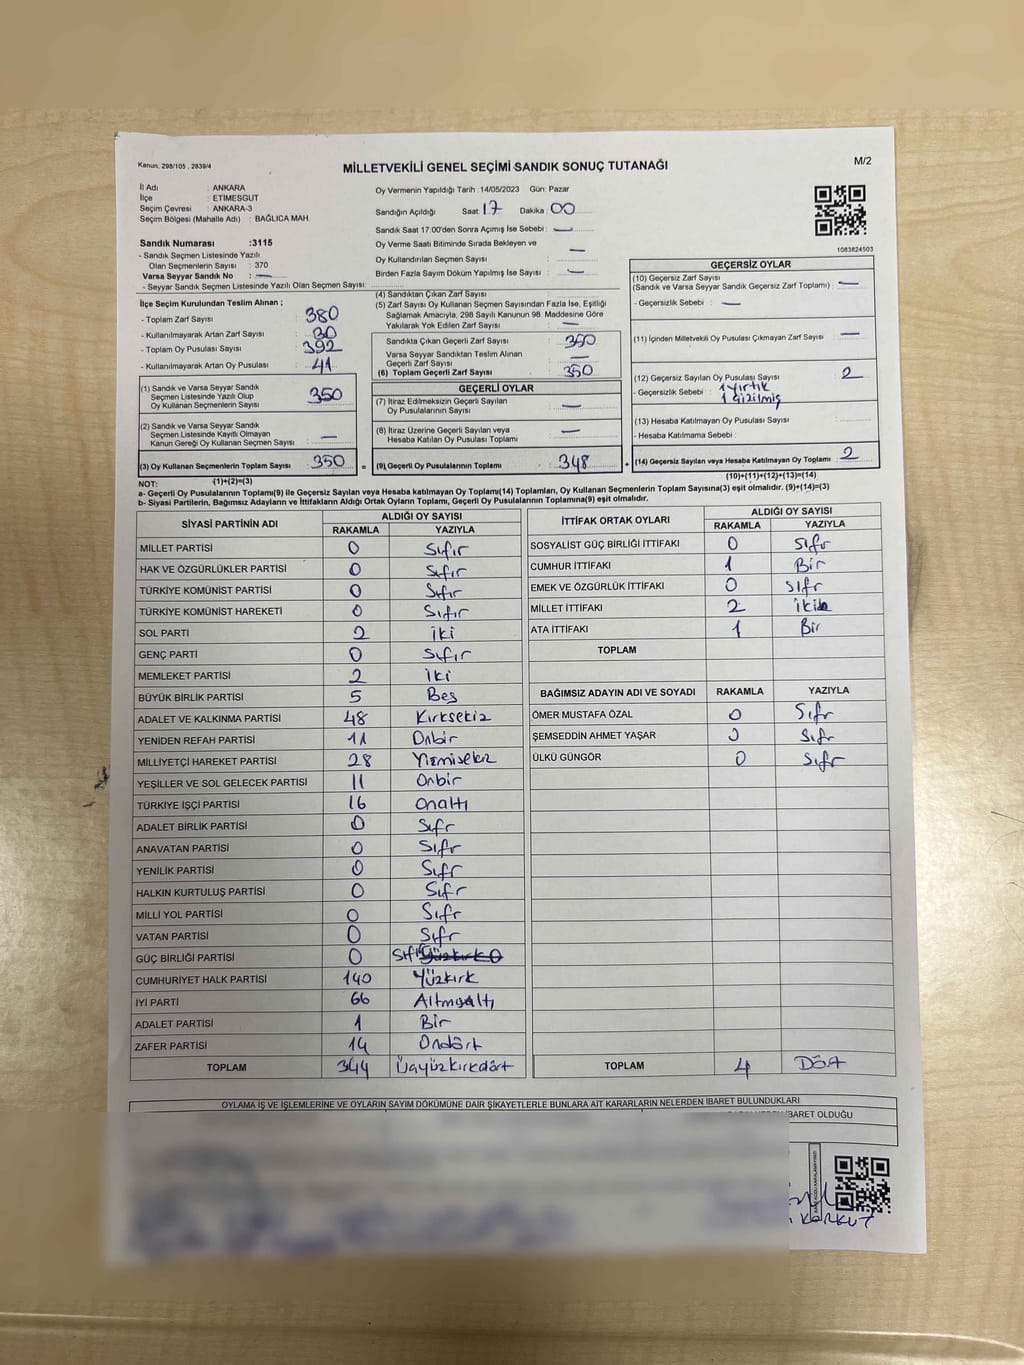 Kanun, 298/105 , 2839/4
MİLLETVEKİLİ GENEL SEÇİMİ SANDIK SONUÇ TUTANAĞI
M/2
İl Adı : ANKARA
İlçe : ETİMESGUT
Seçim Çevresi : ANKARA-3
Seçim Bölgesi (Mahalle Adı) : BAĞLICA MAH.
Sandık Numarası :3115
- Sandık Seçmen Listesinde Yazılı
Olan Seçmenlerin Sayısı : 370
Varsa Seyyar Sandık No : —
- Seyyar Sandık Seçmen Listesinde Yazılı Olan Seçmen Sayısı:
Oy Vermenin Yapıldığı Tarih : 14/05/2023 Gün: Pazar
Sandığın Açıldığı Saat: 17 Dakika : 00
Sandık Saat 17:00'den Sonra Açımış İse Sebebi : —
Oy Verme Saati Bitiminde Sırada Bekleyen ve
Oy Kullandırılan Seçmen Sayısı : —
Birden Fazla Sayım Döküm Yapılmış İse Sayısı : —
1083824503
İlçe Seçim Kurulundan Teslim Alınan ;
- Toplam Zarf Sayısı : 380
- Kullanılmayarak Artan Zarf Sayısı : 30
- Toplam Oy Pusulası Sayısı : 392
- Kullanılmayarak Artan Oy Pusulası : 41
(1) Sandık ve Varsa Seyyar Sandık
Seçmen Listesinde Yazılı Olup
Oy Kullanan Seçmenlerin Sayısı : 350
(2) Sandık ve Varsa Seyyar Sandık
Seçmen Listesinde Kayıtlı Olmayan
Kanun Gereği Oy Kullanan Seçmen Sayısı : —
(3) Oy Kullanan Seçmenlerin Toplam Sayısı : 350 =
(1)+(2)=(3)
(4) Sandıktan Çıkan Zarf Sayısı :
(5) Zarf Sayısı Oy Kullanan Seçmen Sayısından Fazla İse, Eşitliği
Sağlamak Amacıyla, 298 Sayılı Kanunun 98. Maddesine Göre
Yakılarak Yok Edilen Zarf Sayısı : —
Sandıkta Çıkan Geçerli Zarf Sayısı : 350
Varsa Seyyar Sandıktan Teslim Alınan
Geçerli Zarf Sayısı : —
(6) Toplam Geçerli Zarf Sayısı : 350
GEÇERLİ OYLAR
(7) İtiraz Edilmeksizin Geçerli Sayılan
Oy Pusulalarının Sayısı : —
(8) İtiraz Üzerine Geçerli Sayılan veya
Hesaba Katılan Oy Pusulası Toplamı : —
(9) Geçerli Oy Pusulalarının Toplamı : 348 +
GEÇERSİZ OYLAR
(10) Geçersiz Zarf Sayısı
(Sandık ve Varsa Seyyar Sandık Geçersiz Zarf Toplamı) : —
- Geçersizlik Sebebi : —
(11) İçinden Milletvekili Oy Pusulası Çıkmayan Zarf Sayısı : —
(12) Geçersiz Sayılan Oy Pusulası Sayısı : 2
- Geçersizlik Sebebi : 1 yırtık
1 çizilmiş
(13) Hesaba Katılmayan Oy Pusulası Sayısı :
- Hesaba Katılmama Sebebi :
(14) Geçersiz Sayılan veya Hesaba Katılmayan Oy Toplamı : 2
(10)+(11)+(12)+(13)=(14)
NOT:
a- Geçerli Oy Pusulalarının Toplamı(9) ile Geçersiz Sayılan veya Hesaba katılmayan Oy Toplamı(14) Toplamları, Oy Kullanan Seçmenlerin Toplam Sayısına(3) eşit olmalıdır. (9)+(14)=(3)
b- Siyasi Partilerin, Bağımsız Adayların ve İttifakların Aldığı Ortak Oyların Toplamı, Geçerli Oy Pusulalarının Toplamına(9) eşit olmalıdır.
SİYASİ PARTİNİN ADI ALDIĞI OY SAYISI
RAKAMLA YAZIYLA
MİLLET PARTİSİ 0 Sıfır
HAK VE ÖZGÜRLÜKLER PARTİSİ 0 Sıfır
TÜRKİYE KOMÜNİST PARTİSİ 0 Sıfır
TÜRKİYE KOMÜNİST HAREKETİ 0 Sıfır
SOL PARTİ 2 iki
GENÇ PARTİ 0 Sıfır
MEMLEKET PARTİSİ 2 iki
BÜYÜK BİRLİK PARTİSİ 5 Beş
ADALET VE KALKINMA PARTİSİ 48 Kırksekiz
YENİDEN REFAH PARTİSİ 11 Onbir
MİLLİYETÇİ HAREKET PARTİSİ 28 Yirmisekiz
YEŞİLLER VE SOL GELECEK PARTİSİ 11 Onbir
TÜRKİYE İŞÇİ PARTİSİ 16 Onaltı
ADALET BİRLİK PARTİSİ 0 Sıfr
ANAVATAN PARTİSİ 0 Sıfr
YENİLİK PARTİSİ 0 Sıfr
HALKIN KURTULUŞ PARTİSİ 0 Sıfr
MİLLİ YOL PARTİSİ 0 Sıfr
VATAN PARTİSİ 0 Sıfr
GÜÇ BİRLİĞİ PARTİSİ 0 Sıfır
CUMHURİYET HALK PARTİSİ 140 Yüzkırk
İYİ PARTİ 66 Altmışaltı
ADALET PARTİSİ 1 Bir
ZAFER PARTİSİ 14 Ondört
TOPLAM 344 Üçyüzkırkdört
İTTİFAK ORTAK OYLARI ALDIĞI OY SAYISI
RAKAMLA YAZIYLA
SOSYALİST GÜÇ BİRLİĞİ İTTİFAKI 0 Sıfr
CUMHUR İTTİFAKI 1 Bir
EMEK VE ÖZGÜRLÜK İTTİFAKI 0 Sıfr
MİLLET İTTİFAKI 2 iki
ATA İTTİFAKI 1 Bir
TOPLAM
BAĞIMSIZ ADAYIN ADI VE SOYADI RAKAMLA YAZIYLA
ÖMER MUSTAFA ÖZAL 0 Sıfr
ŞEMSEDDİN AHMET YAŞAR 0 Sıfr
ÜLKÜ GÜNGÖR 0 Sıfr
TOPLAM 4 Dört
OYLAMA İŞ VE İŞLEMLERİNE VE OYLARIN SAYIM DÖKÜMÜNE DAİR ŞİKAYETLERLE BUNLARA AİT KARARLARIN NELERDEN İBARET BULUNDUKLARI
İBARET OLDUĞU
KORKUT